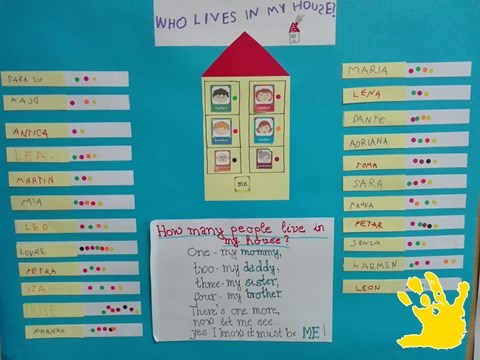 WHO LIVES IN MY HOUSE?
DARA SU
KAJO
ANTICA
LEA.
MARTIN
MIA
LEO
LOVRE
PETRA
ITA
DUJE
FRANKO
me
How many people live in
my house?
One - my mommy,
two - my daddy,
three - my sister,
four - my brother.
There's one more,
now let me see...
yes I know it must be ME!
MARIA
LENA
DANTE
ADRIANA
TOMA
SARA
PETAR
SONJA
KARMEN
LEON